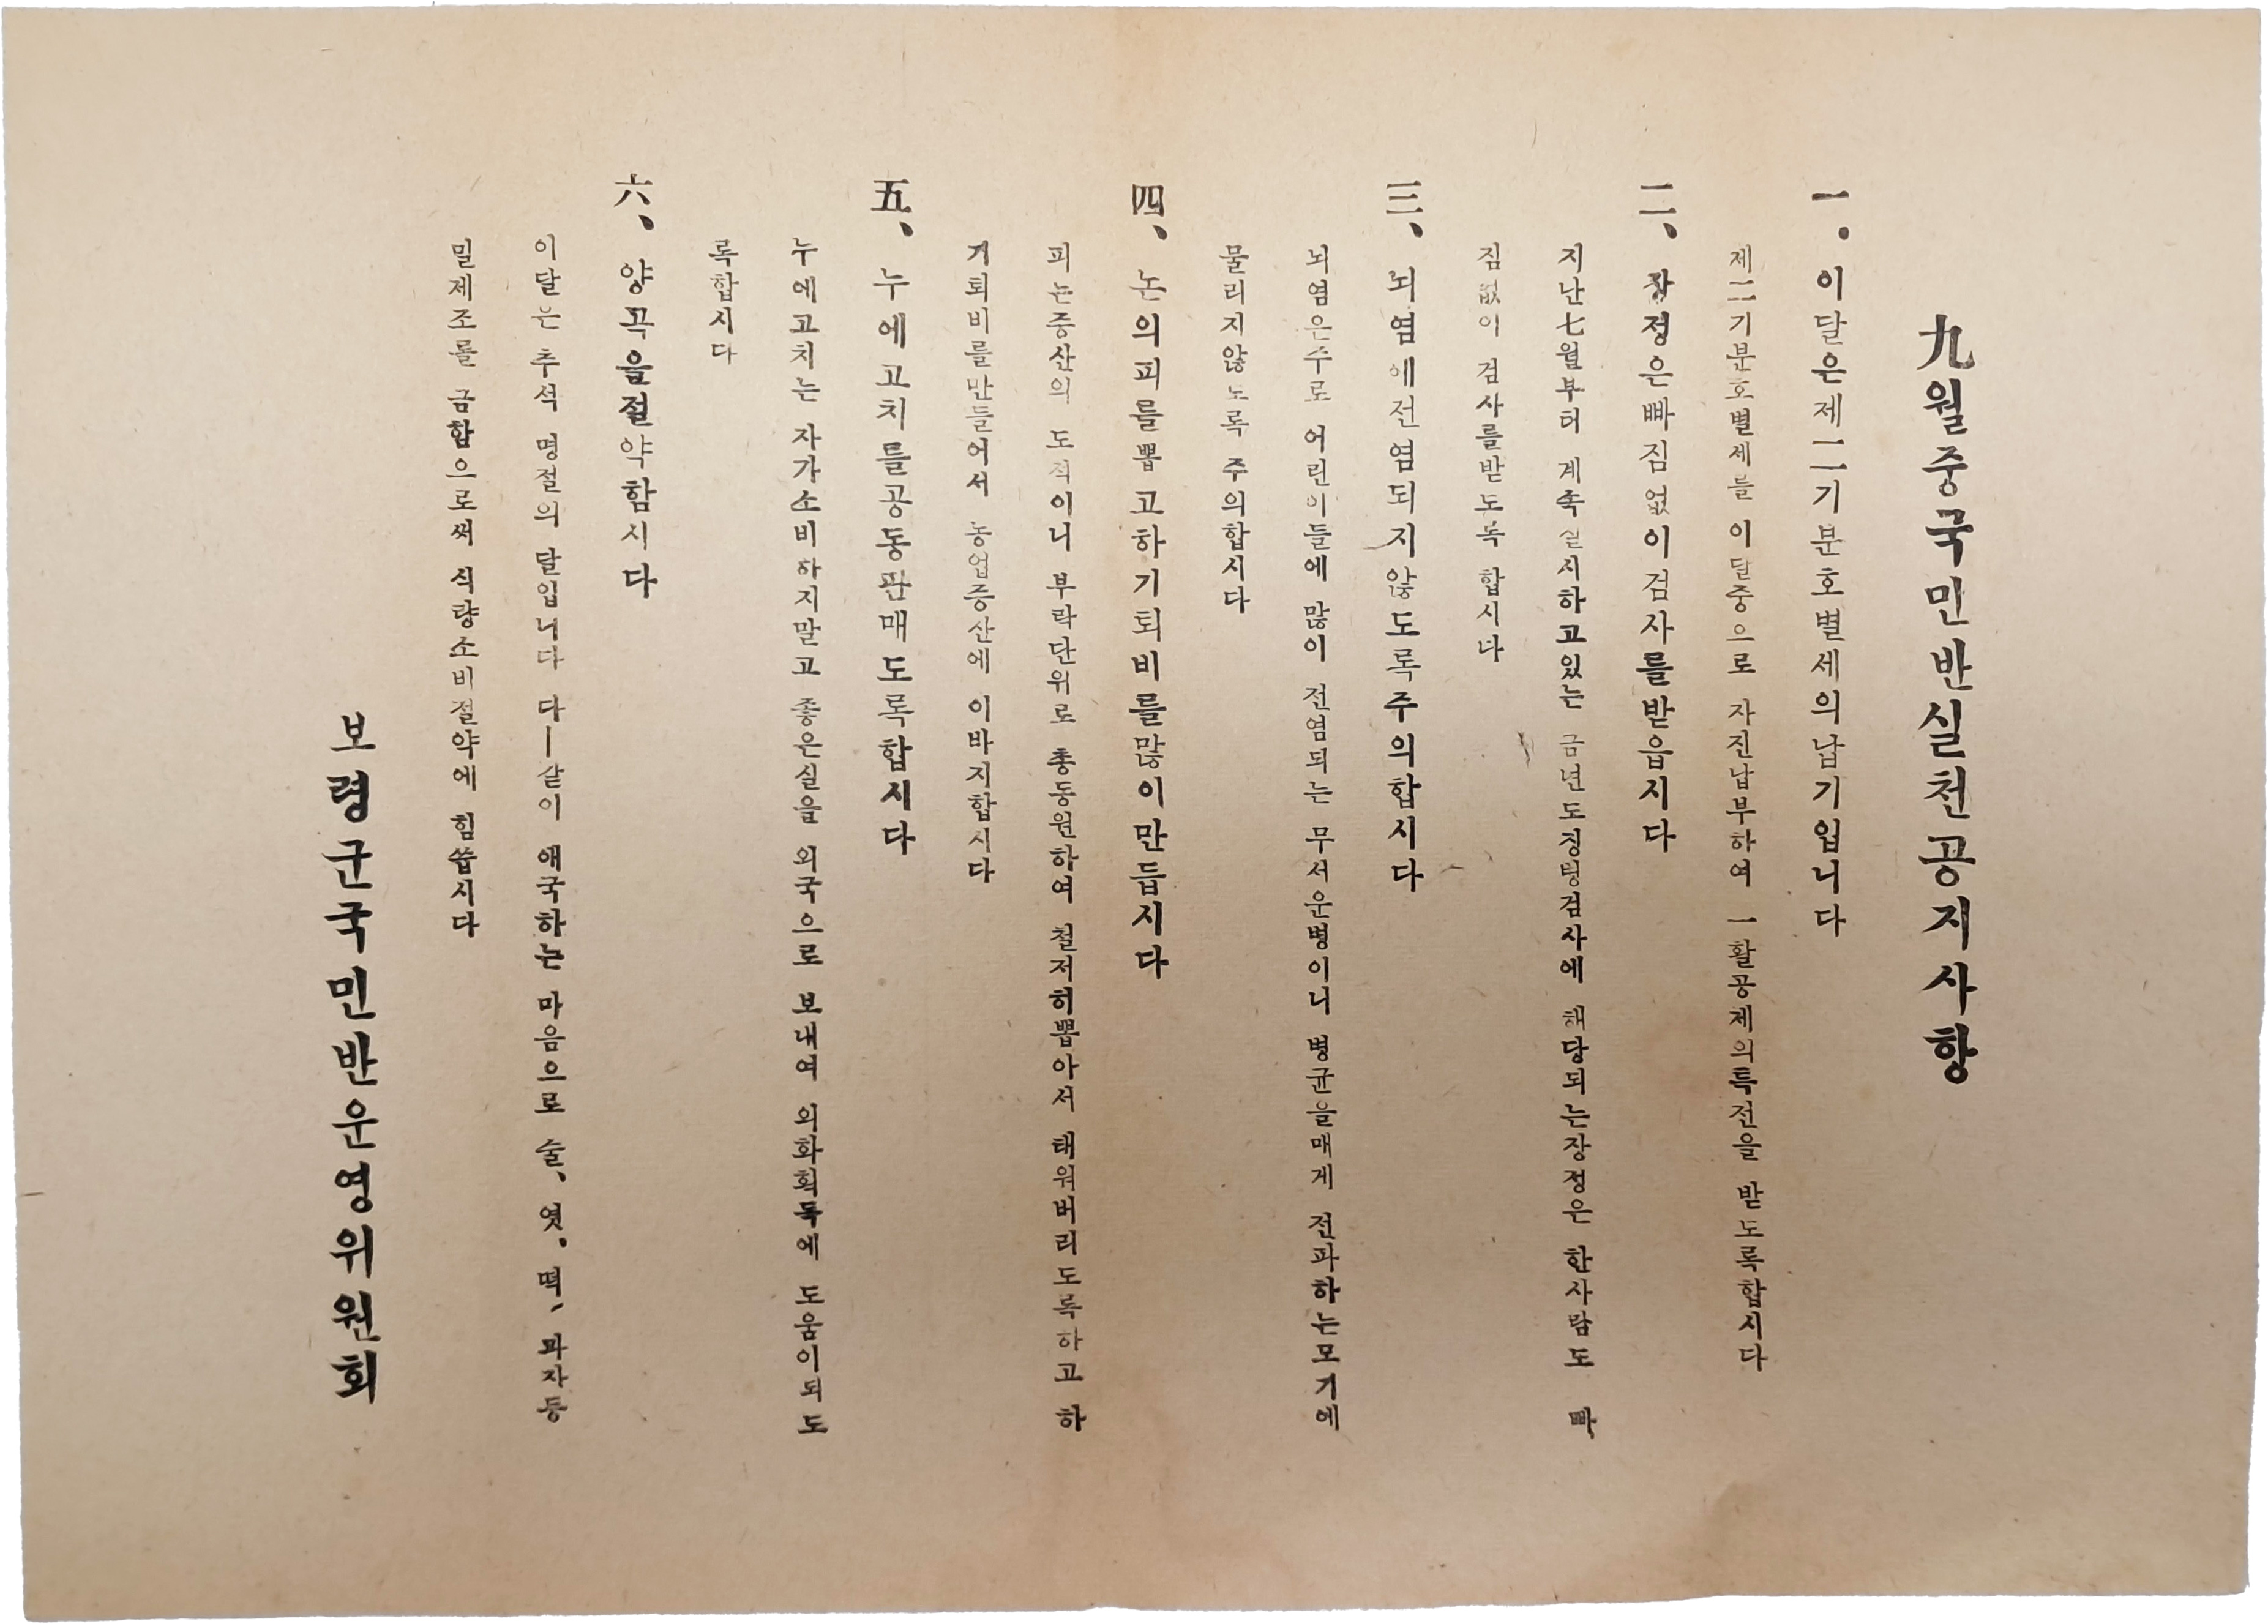 九월중국민반실천공지사항
一. 이달은제二기분호별세의납기입니다
제二기분호별세를 이달중으로 자진납부하여 一활공제의특전을 받도록합시다
二、 장정은빠짐없이검사를받읍시다
지난七월부터 계속실시하고있는 금년도징병검사에 해당되는장정은 한사람도 빠
짐없이 검사를받도록 합시다
三、 뇌염에전염되지않도록주의합시다
뇌염은주로 어린이들에 많이 전염되는 무서운병이니 병균을매게 전파하는모기에
물리지않도록 주의합시다
四、 논의피를뽑고하기퇴비를많이만듭시다
피는증산의 도적이니 부락단위로 총동원하여 철저히뽑아서 태워버리도록하고 하
기퇴비를만들어서 농업증산에 이바지합시다
五、 누에고치를공동판매도록합시다
누에고치는 자가소비하지말고 좋은실을 외국으로 보내여 외화획득에 도움이되도
록합시다
六、 양곡을절약합시다
이달은 추석 명절의 달입니다 다ㅣ같이 애국하는 마음으로 술、엿. 떡, 과자등
밀제조를 금함으로써 식량소비절약에 힘씁시다
보령군국민반운영위원회